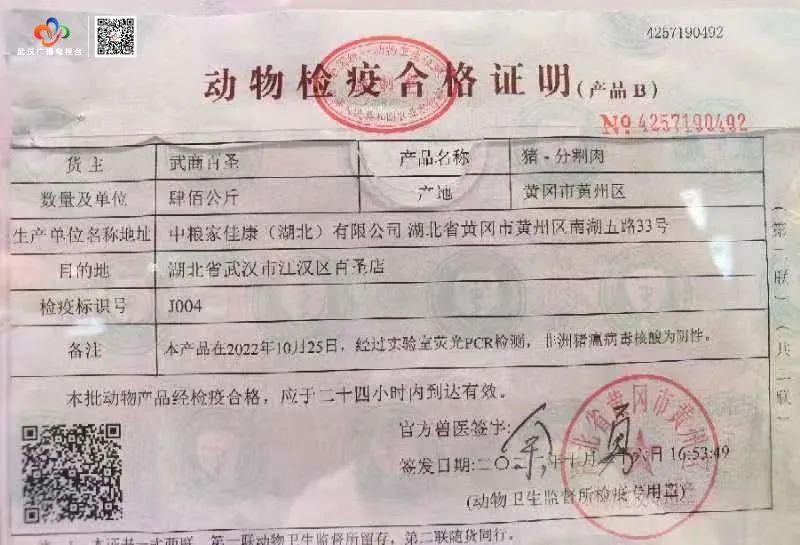 武汉广播电视台
4257190492
动物检疫合格证明(产品B)
No 4257190492
货主 武商百圣 产品名称 猪·分割肉
数量及单位 肆佰公斤 产地 黄冈市黄州区
生产单位名称地址 中粮家佳康（湖北）有限公司 湖北省黄冈市黄州区南湖五路33号
目的地 湖北省武汉市江汉区百圣店
检疫标识号 J004
备注 本产品在2022年10月25日，经过实验室荧光PCR检测，非洲猪瘟病毒核酸为阴性。
本批动物产品经检疫合格，应于二十四小时内到达有效。
官方兽医签字:
签发日期:二〇 年十月 日 16:53:49
(动物卫生监督所检疫专用章)
北省黄冈市黄州
第一联
共一联
本证书一式两联，第一联动物卫生监督所留存，第二联随货同行。